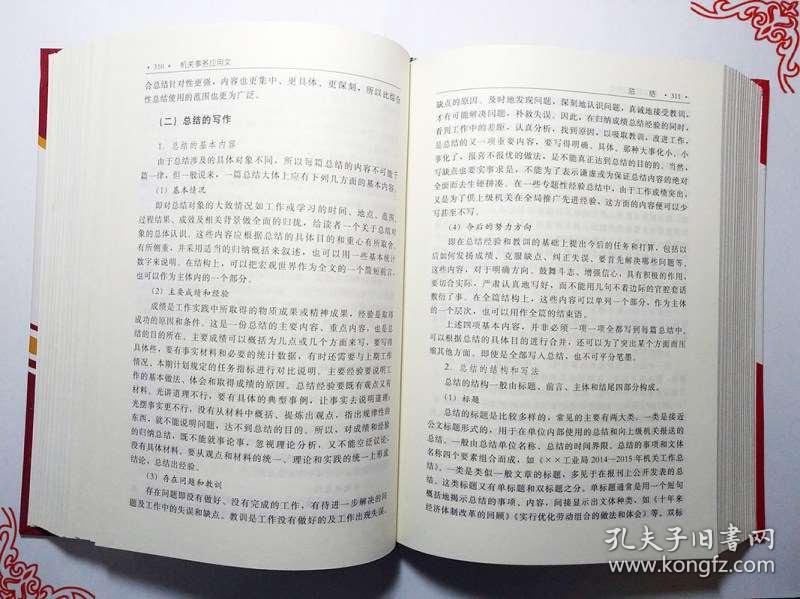 · 310 · 机关事务应用文
合总结针对性更强，内容也更集中、更具体、更深刻，所以比综合
性总结使用的范围也更为广泛。
（二）总结的写作
1. 总结的基本内容
由于总结涉及的具体对象不同，所以每篇总结的内容不可能千
篇一律，但一般说来，一篇总结大体上应有下列几方面的基本内容：
（1）基本情况
即对总结对象的大致情况如工作或学习的时间、地点、范围、
过程结果、成效及相关背景做全面的归拢，给读者一个关于总结对
象的总体认识。这些内容应根据总结的具体目的和重心有所取舍、
有所侧重，并采用适当的归纳概括来叙述，也可以用一些基本统计
数字来说明。在结构上，可以把宏观世界作为全文的一个简短前言，
也可以作为主体内的一个部分。
（2）主要成绩和经验
成绩是工作实践中所取得的物质成果或精神成果，经验是取得
成功的原因和条件。这是一份总结的主要内容、重点内容，也是总
结的目的所在。主要成绩可以概括为几点或几个方面来写，要写得
具体些，要有事实材料和必要的统计数据，有时还需要与上期工作
情况、本期计划规定的任务指标进行对比说明。主要经验要写明工
作的基本做法、体会和取得成绩的原因。总结经验要既有观点又有
材料。光讲道理不行，要有具体的典型事例，让事实去说明道理；
光摆事实更不行，没有从材料中概括、提炼出观点，指出规律性的
东西，就不能说明问题，达不到总结的目的。所以，对成绩和经验
的归纳总结，既不能就事论事，忽视理论分析，又不能空泛议论，
没有具体材料。要从观点和材料的统一、理论和实践的统一上形成
结论，总结出经验。
（3）存在问题和教训
存在问题即没有做好、没有完成的工作，有待进一步解决的问
题及工作中的失误和缺点。教训是工作没有做好的及工作出现失误、
总 结 · 311 ·
缺点的原因。及时地发现问题，深刻地认识问题，真诚地接受教训，
才有可能解决问题，补救失误。因此，在归纳成绩总结经验的同时，
看到工作中的差距，认真分析，找到原因，以吸取教训，改进工作，
是总结的又一项重要内容，要写得明确、具体。那种大事化小、小
事化了，报喜不报忧的做法，是不能真正达到总结的目的的。当然，
写缺点也要实事求是，不能为了表示谦虚或为保证总结内容的绝对
全面而去生硬拼凑。在一些专题性经验总结中，由于工作成绩突出，
又是为了供上级机关在全局推广先进经验、这方面的内容便可以少
写甚至不写。
（4）今后的努力方向
即在总结经验和教训的基础上提出今后的任务和打算，包括以
后如何发扬成绩、克服缺点、纠正失误、要首先解决哪些问题等。
这些内容，对于明确方向、鼓舞斗志、增强信心，具有积极的作用，
要切合实际，严肃认真地写好，而不能用几句不着边际的官腔套话
敷衍了事。在全篇结构上，这些内容可以单列一个部分，作为主体
的一个层次，也可以用作全篇的结束语。
上述四项基本内容，并非必须一项一项全部写到每篇总结中。
可以根据总结的具体目的进行合并，还可以为了突出某个方面而压
缩其他方面。即使是全部写入总结，也不可平分笔墨。
2. 总结的结构和写法
总结的结构一般由标题、前言、主体和结尾四部分构成。
（1）标题
总结的标题是比较多样的，常见的主要有两大类。一类是接近
公文标题形式的，用于在单位内部使用的总结和向上级机关报送的
总结。一般由总结单位名称、总结的时间界限、总结的事项和文体
名称四个要素组合而成，如《××工业局2014—2015年机关工作总
结》。一类是类似一般文章的标题，多见于在报刊上公开发表的总
结。这类标题又有单标题和双标题之分。单标题通常是用一个短句
概括地揭示总结的事项、内容，间接显示出文体种类，如《十年来
经济体制改革的回顾》《实行优化劳动组合的做法和体会》等。双标
孔夫子旧书网
www.kongfz.com